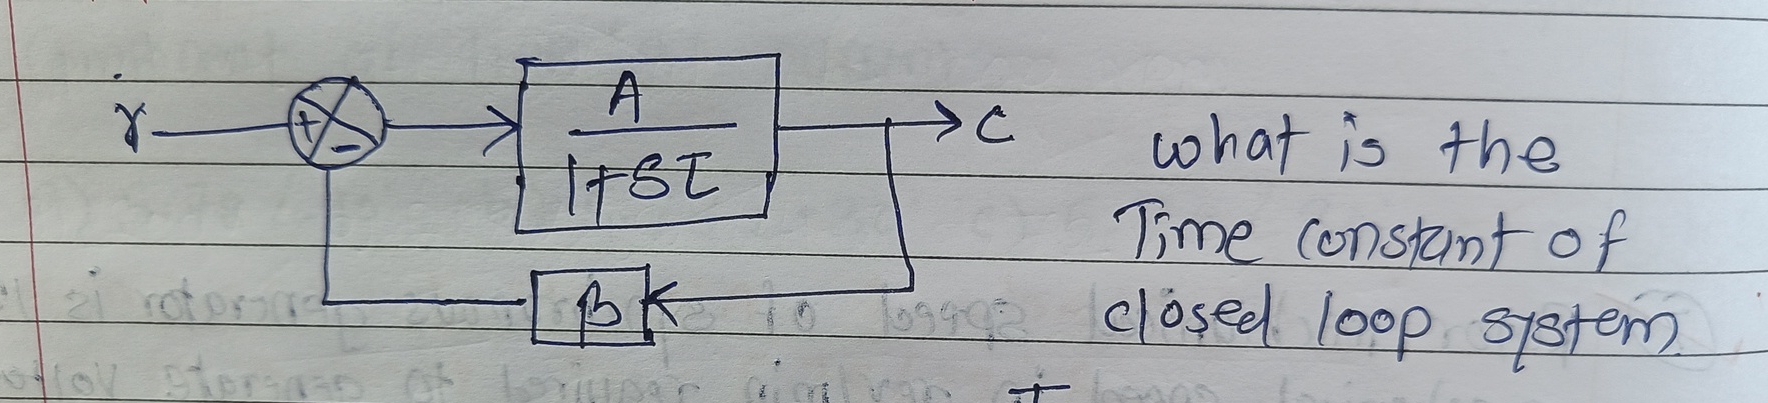 r
+
-
A
1+sτ
C
β
what is the
Time constant of
closed loop system